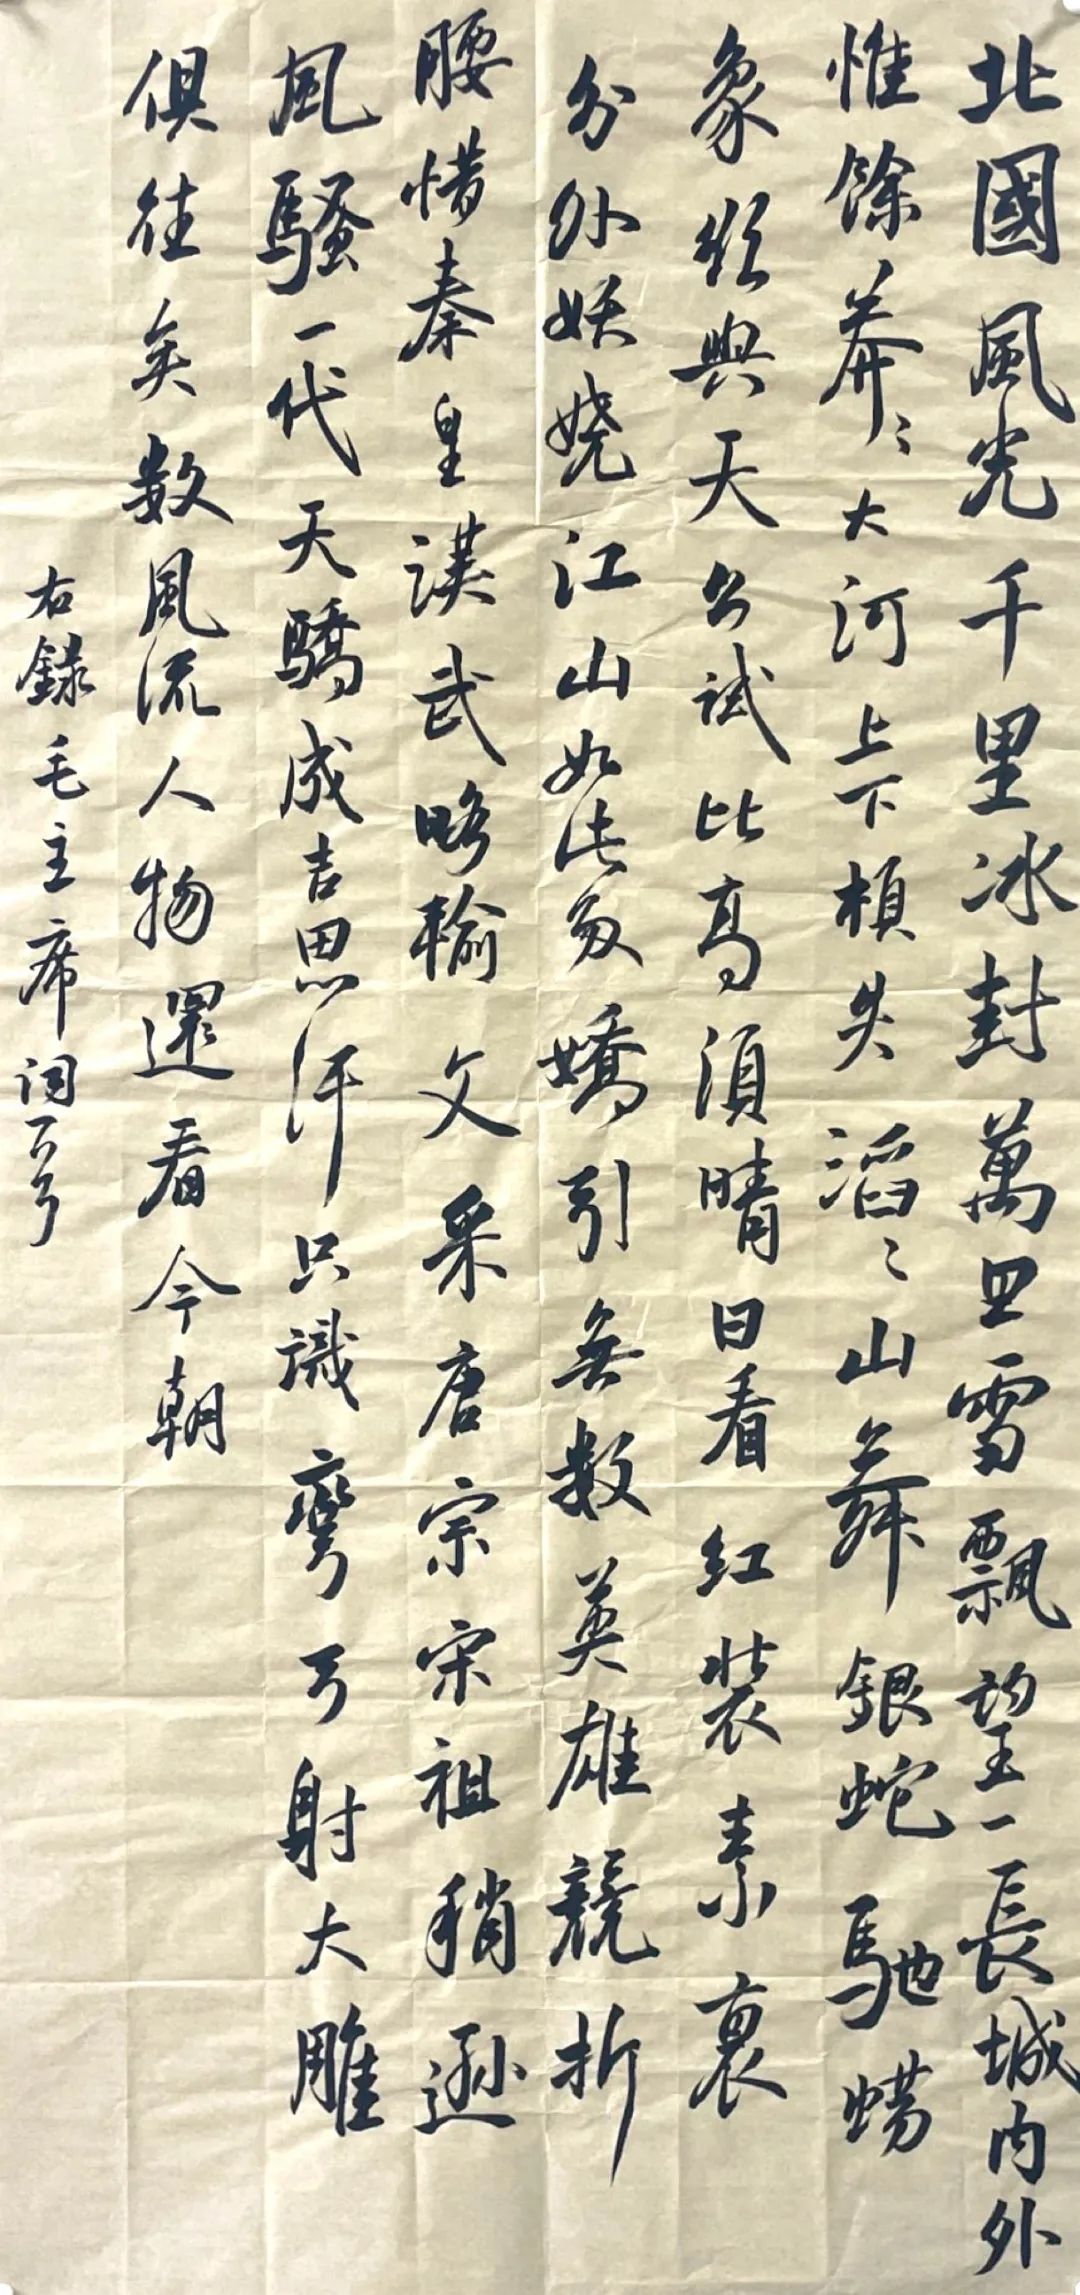 北國風光千里冰封萬里雪飄望一長城内外
惟餘莽〻大河上下頓失滔〻山舞銀蛇馳
象欲與天公試比高須晴日看紅裝素裹
分外妖娆江山如此多嬌引無數英雄競折
腰惜秦皇漢武略輸文采唐宗宋祖稍遜
風騷一代天驕成吉思汗只識彎弓射大雕
俱往矣数風流人物還看今朝
右録毛主席词